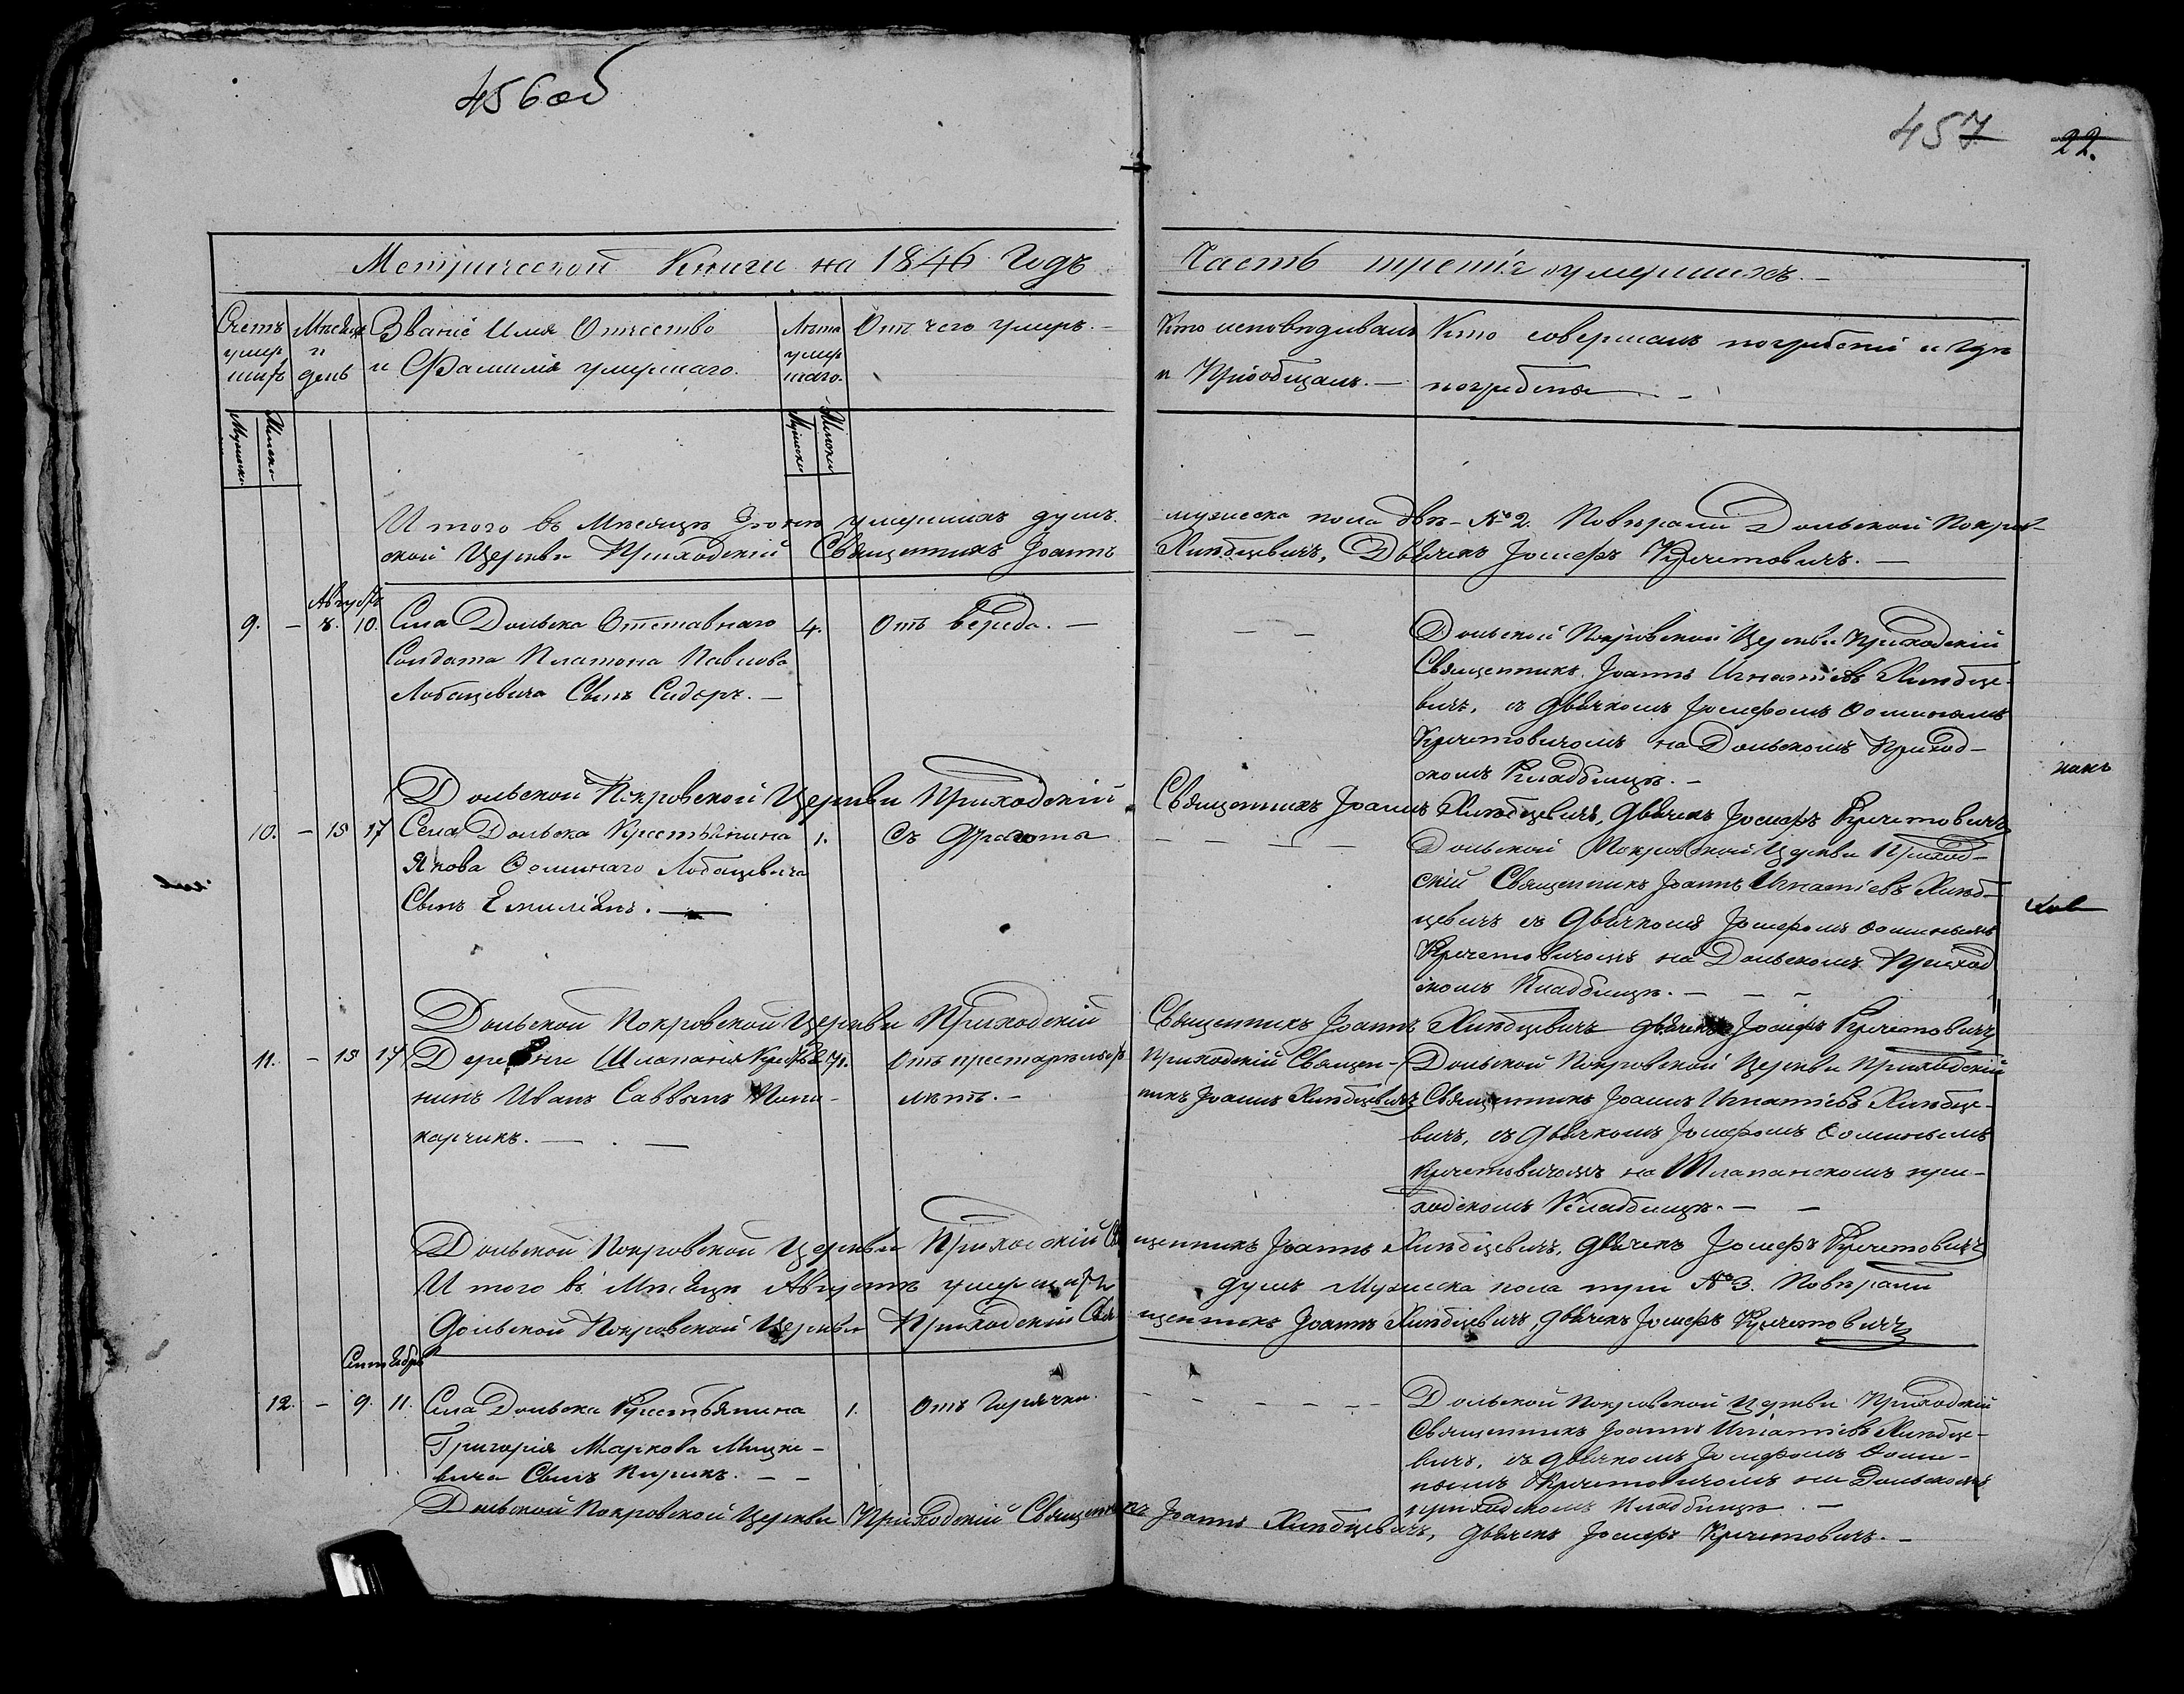 456об
457
22.
Метрической Книги на 1846 Годъ
Часть третія о умершихъ. —
Счетъ умер шихъ
Мѣсяцъ и день
Званіе Имя Отчество и Фамилія умершаго.
Лѣта умер шаго.
Отъ чего умеръ. —
Кто исповѣдывалъ и Пріобщалъ. —
Кто совершалъ погребеніе и гдѣ погребены
Мужеска
Женска
Мужеска
Женска
И того въ Мѣсяцѣ Іюнѣ умершихъ душъ мужеска пола двѣ — № 2. Повѣряли Дольской Покров-
ской Церкви Приходскій Священникъ Іоаннъ Хлѣбцевичъ, Дьячекъ Іосифъ Кречетовичъ. —
Августъ
9. — 8. 10. Села Дольска Отставнаго 4. Отъ вереда. — — —
Солдата Платона Павлова
Лобацевича Сынъ Сидоръ. —
Дольской Покровской Церкви Приходскій
Священникъ Іоаннъ Игнатіевъ Хлѣбце-
вичъ, съ дьячкомъ Іосифомъ Ѳоминымъ
Кречетовичомъ на Дольскомъ Приход-
скомъ Кладбищѣ. —
Дольской Покровской Церкви Приходскій Священникъ Іоаннъ Хлѣбцевичъ, дьячекъ Іосифъ Кречетовичъ
10. — 15 17 Села Дольска Крестьянина 1. Съ — — — —
Якова Ѳомина Лобацевича
Сынъ Емиліянъ. —
Дольской Покровской Церкви Приход-
скій Священникъ Іоаннъ Игнатіевъ Хлѣб-
цевичъ съ дьячкомъ Іосифомъ Ѳоминымъ
Кречетовичомъ на Дольскомъ Приход
скомъ Кладбищѣ. — — —
Дольской Покровской Церкви Приходскій Священникъ Іоаннъ Хлѣбцевичъ дьячекъ Іосифъ Кречетовичъ
11. — 15 17 Деревни Шлапаня Крестья Отъ престарѣлыхъ
нинъ Иванъ Саввинъ лѣтъ. —
карчикъ. — . —
Приходскій Священ-
никъ Іоаннъ Хлѣбцевичъ
Дольской Покровской Церкви Приходскій
Священникъ Іоаннъ Игнатіевъ Хлѣбце-
вичъ, съ дьячкомъ Іосифомъ Ѳоминымъ
Кречетовичомъ на Шлапанскомъ при-
ходскомъ Кладбищѣ. — —
Дольской Покровской Церкви Приходскій Священникъ Іоаннъ Хлѣбцевичъ, дьячекъ Іосифъ Кречетовичъ
И того въ Мѣсяцѣ Августѣ умершихъ душъ Мужеска пола три № 3. Повѣряли
дольской Покровской Церкви Приходскій Священникъ Іоаннъ Хлѣбцевичъ, дьячекъ Іосифъ Кречетовичъ
Сентябрь
12. — 9. 11. Села Дольска Крестьянина 1. Отъ Горячки. — — — — —
Григорія Маркова Мицке-
вича Сынъ Кирикъ. — —
Дольской Покровской Церкви Приходскій
Священникъ Іоаннъ Игнатіевъ Хлѣбце-
вичъ, съ дьячкомъ Іосифомъ Ѳоми-
нымъ Кречетовичомъ на Дольскомъ
приходскомъ Кладбищѣ. —
Дольской Покровской Церкви Приходскій Священникъ Іоаннъ Хлѣбцевичъ, дьячекъ Іосифъ Кречетовичъ. —